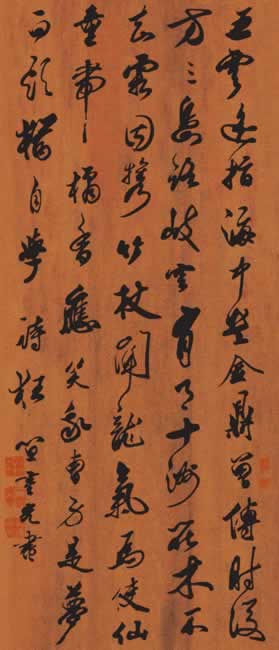 五雲遙指海中央金鼎曾傳肘後
方三島路岐空有月十洲花木不
知霜因攜竹杖聞龍氣為使仙
童帶橘香應笑我曹身是夢
白頭猶自學詩狂 笪重光書